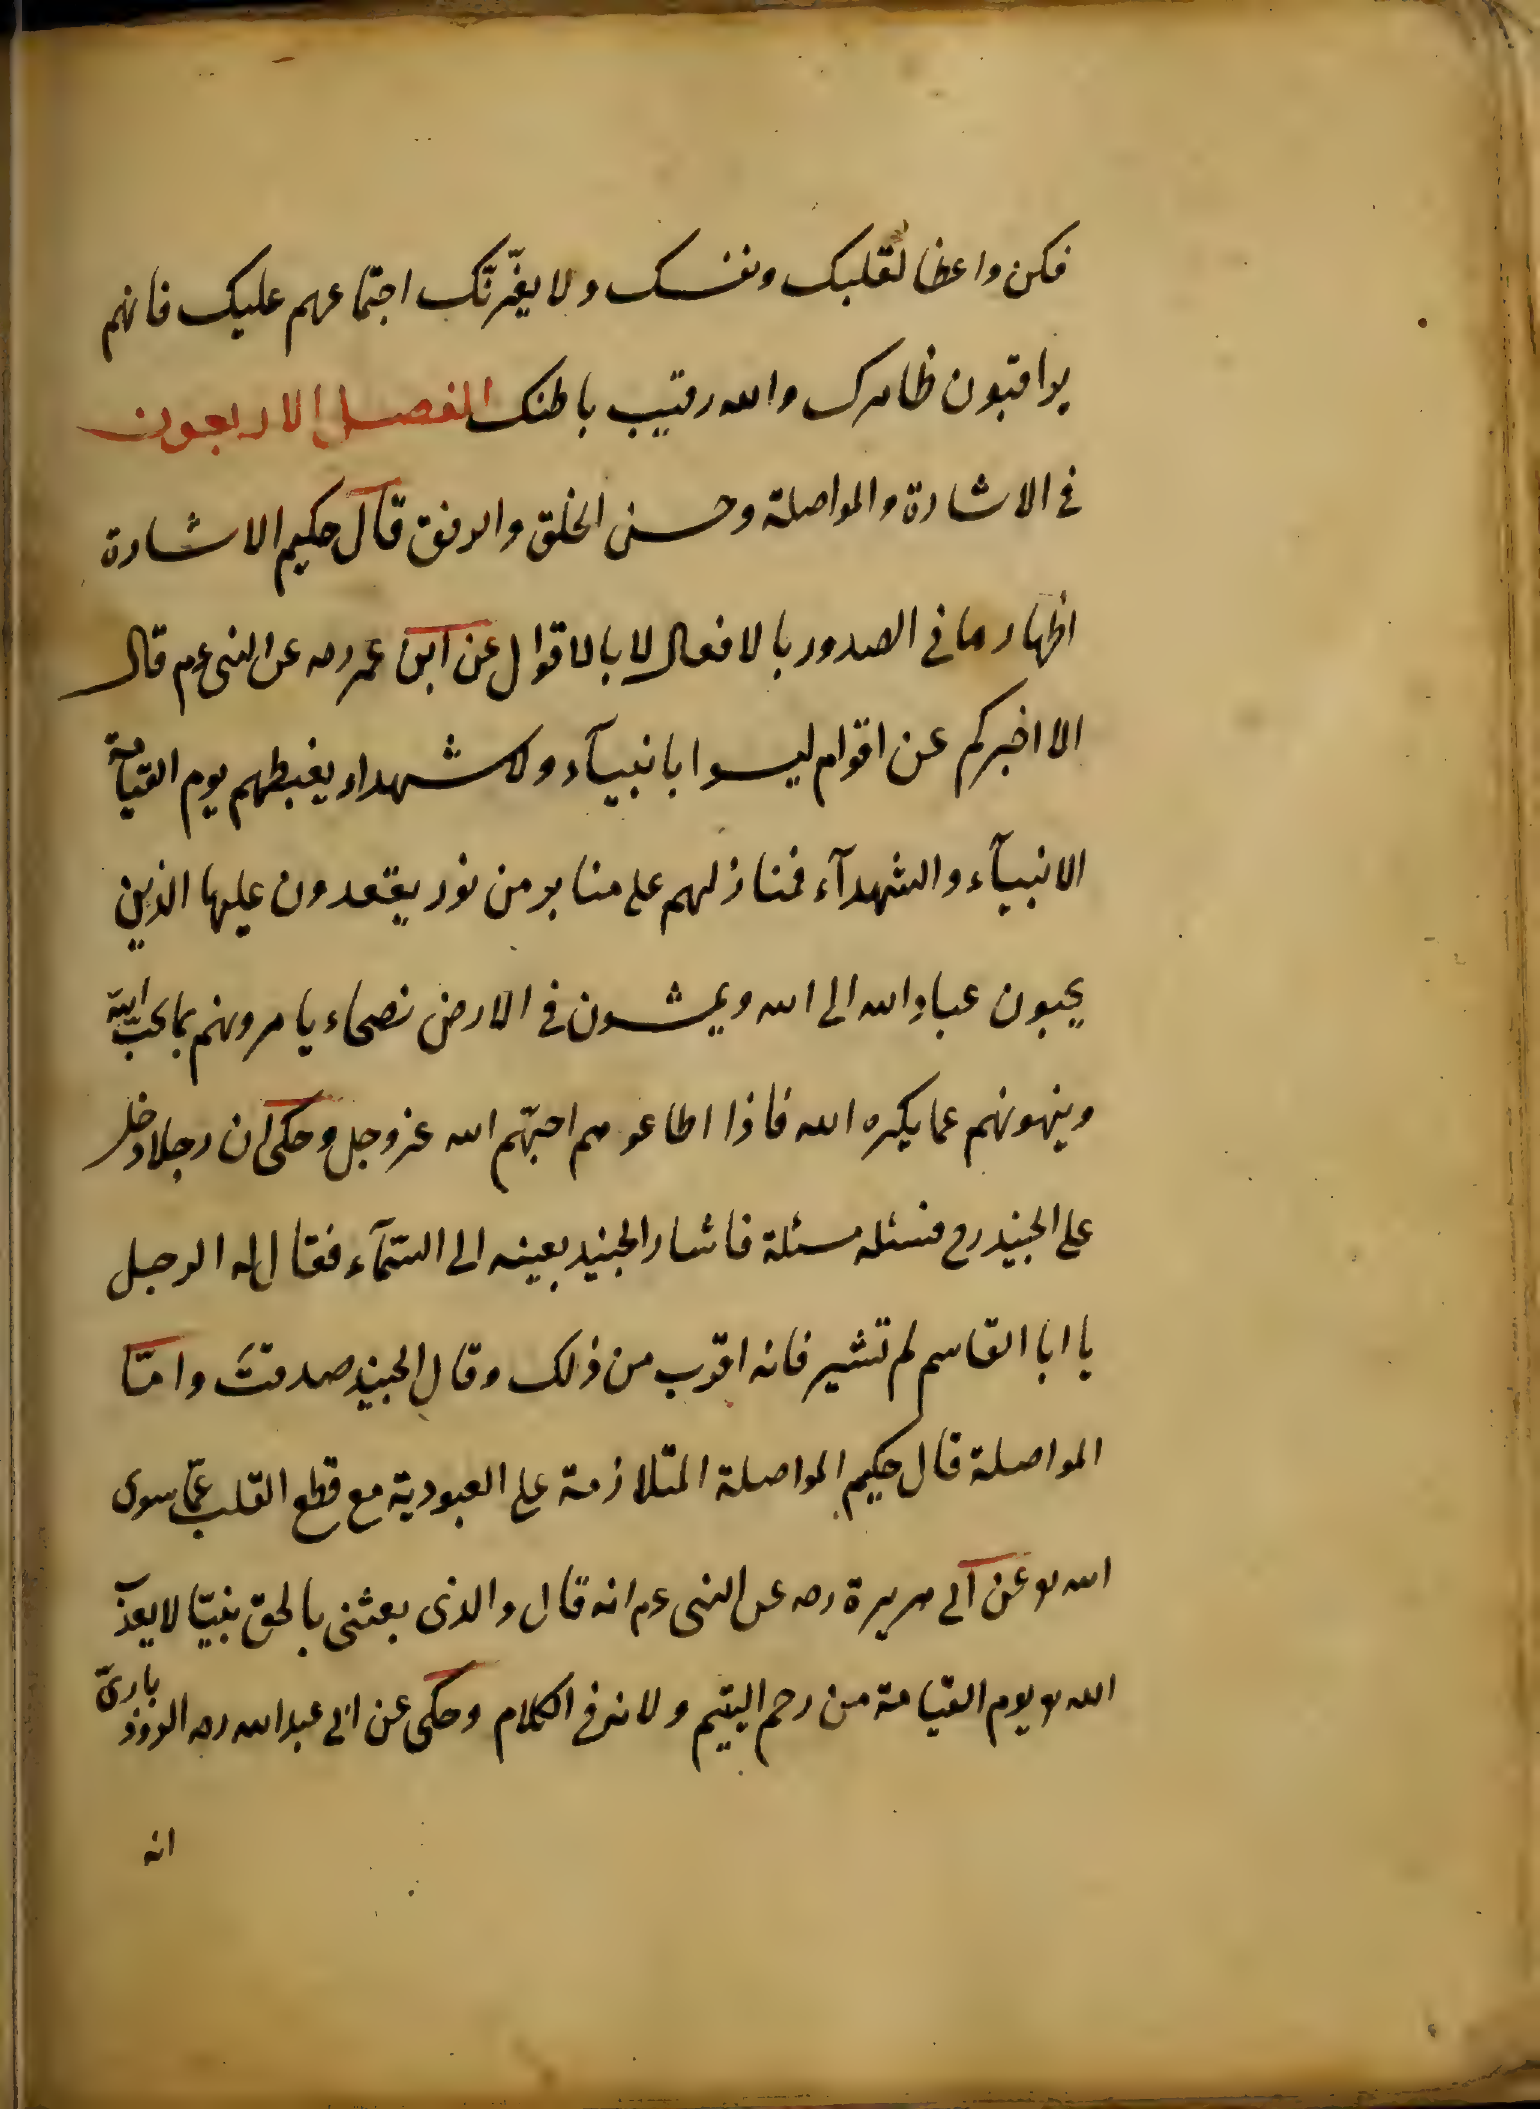 فكن واعظا لقلبك ونفسك ولا يغّرنّك اجتماعهم عليك فانهم
يراقبون ظاهرك والله رقيب باطنك الفصل الاربعون
في الاشارة والمواصلة وحسن الخلق والرفق قال حكيم الاشارة
اظهار ما في الصدور بالافعال لا بالاقوال عن ابن عمر رضه عن النبى عم قال
الا اخبركم عن اقوام ليسوا بانبيآء ولا شهداء يغبطهم يوم القيامة
الانبيآء والشهدآء فمنازلهم على منابر من نور يقعدون عليها الذين
يحبون عباد الله الى الله ويمشون في الارض نصحاء يامرونهم بما يحبّ الله
وينهونهم عما يكره الله فاذا اطاعوهم احبّهم الله عز وجل وحكى ان رجلا دخل
على الجنيد رح فسئله مسئلة فاشار الجنيد بعينه الى السّمآء فقال له الرجل
يا ابا القاسم لم تشير فانه اقرب من ذلك وقال الجنيد صدقتَ وامّا
المواصلة قال حكيم المواصلة المتلازمة على العبودية مع قطع القلب عمّا سوى
الله وعن ابى هريرة رضه عن النبى عم انه قال والذى بعثنى بالحق نبيّا لا يعذّ
الله يوم القيامة من رحم اليتيم ولانه في الكلام وحكى عن ابى عبد الله رحه الروذبارىّ
انه